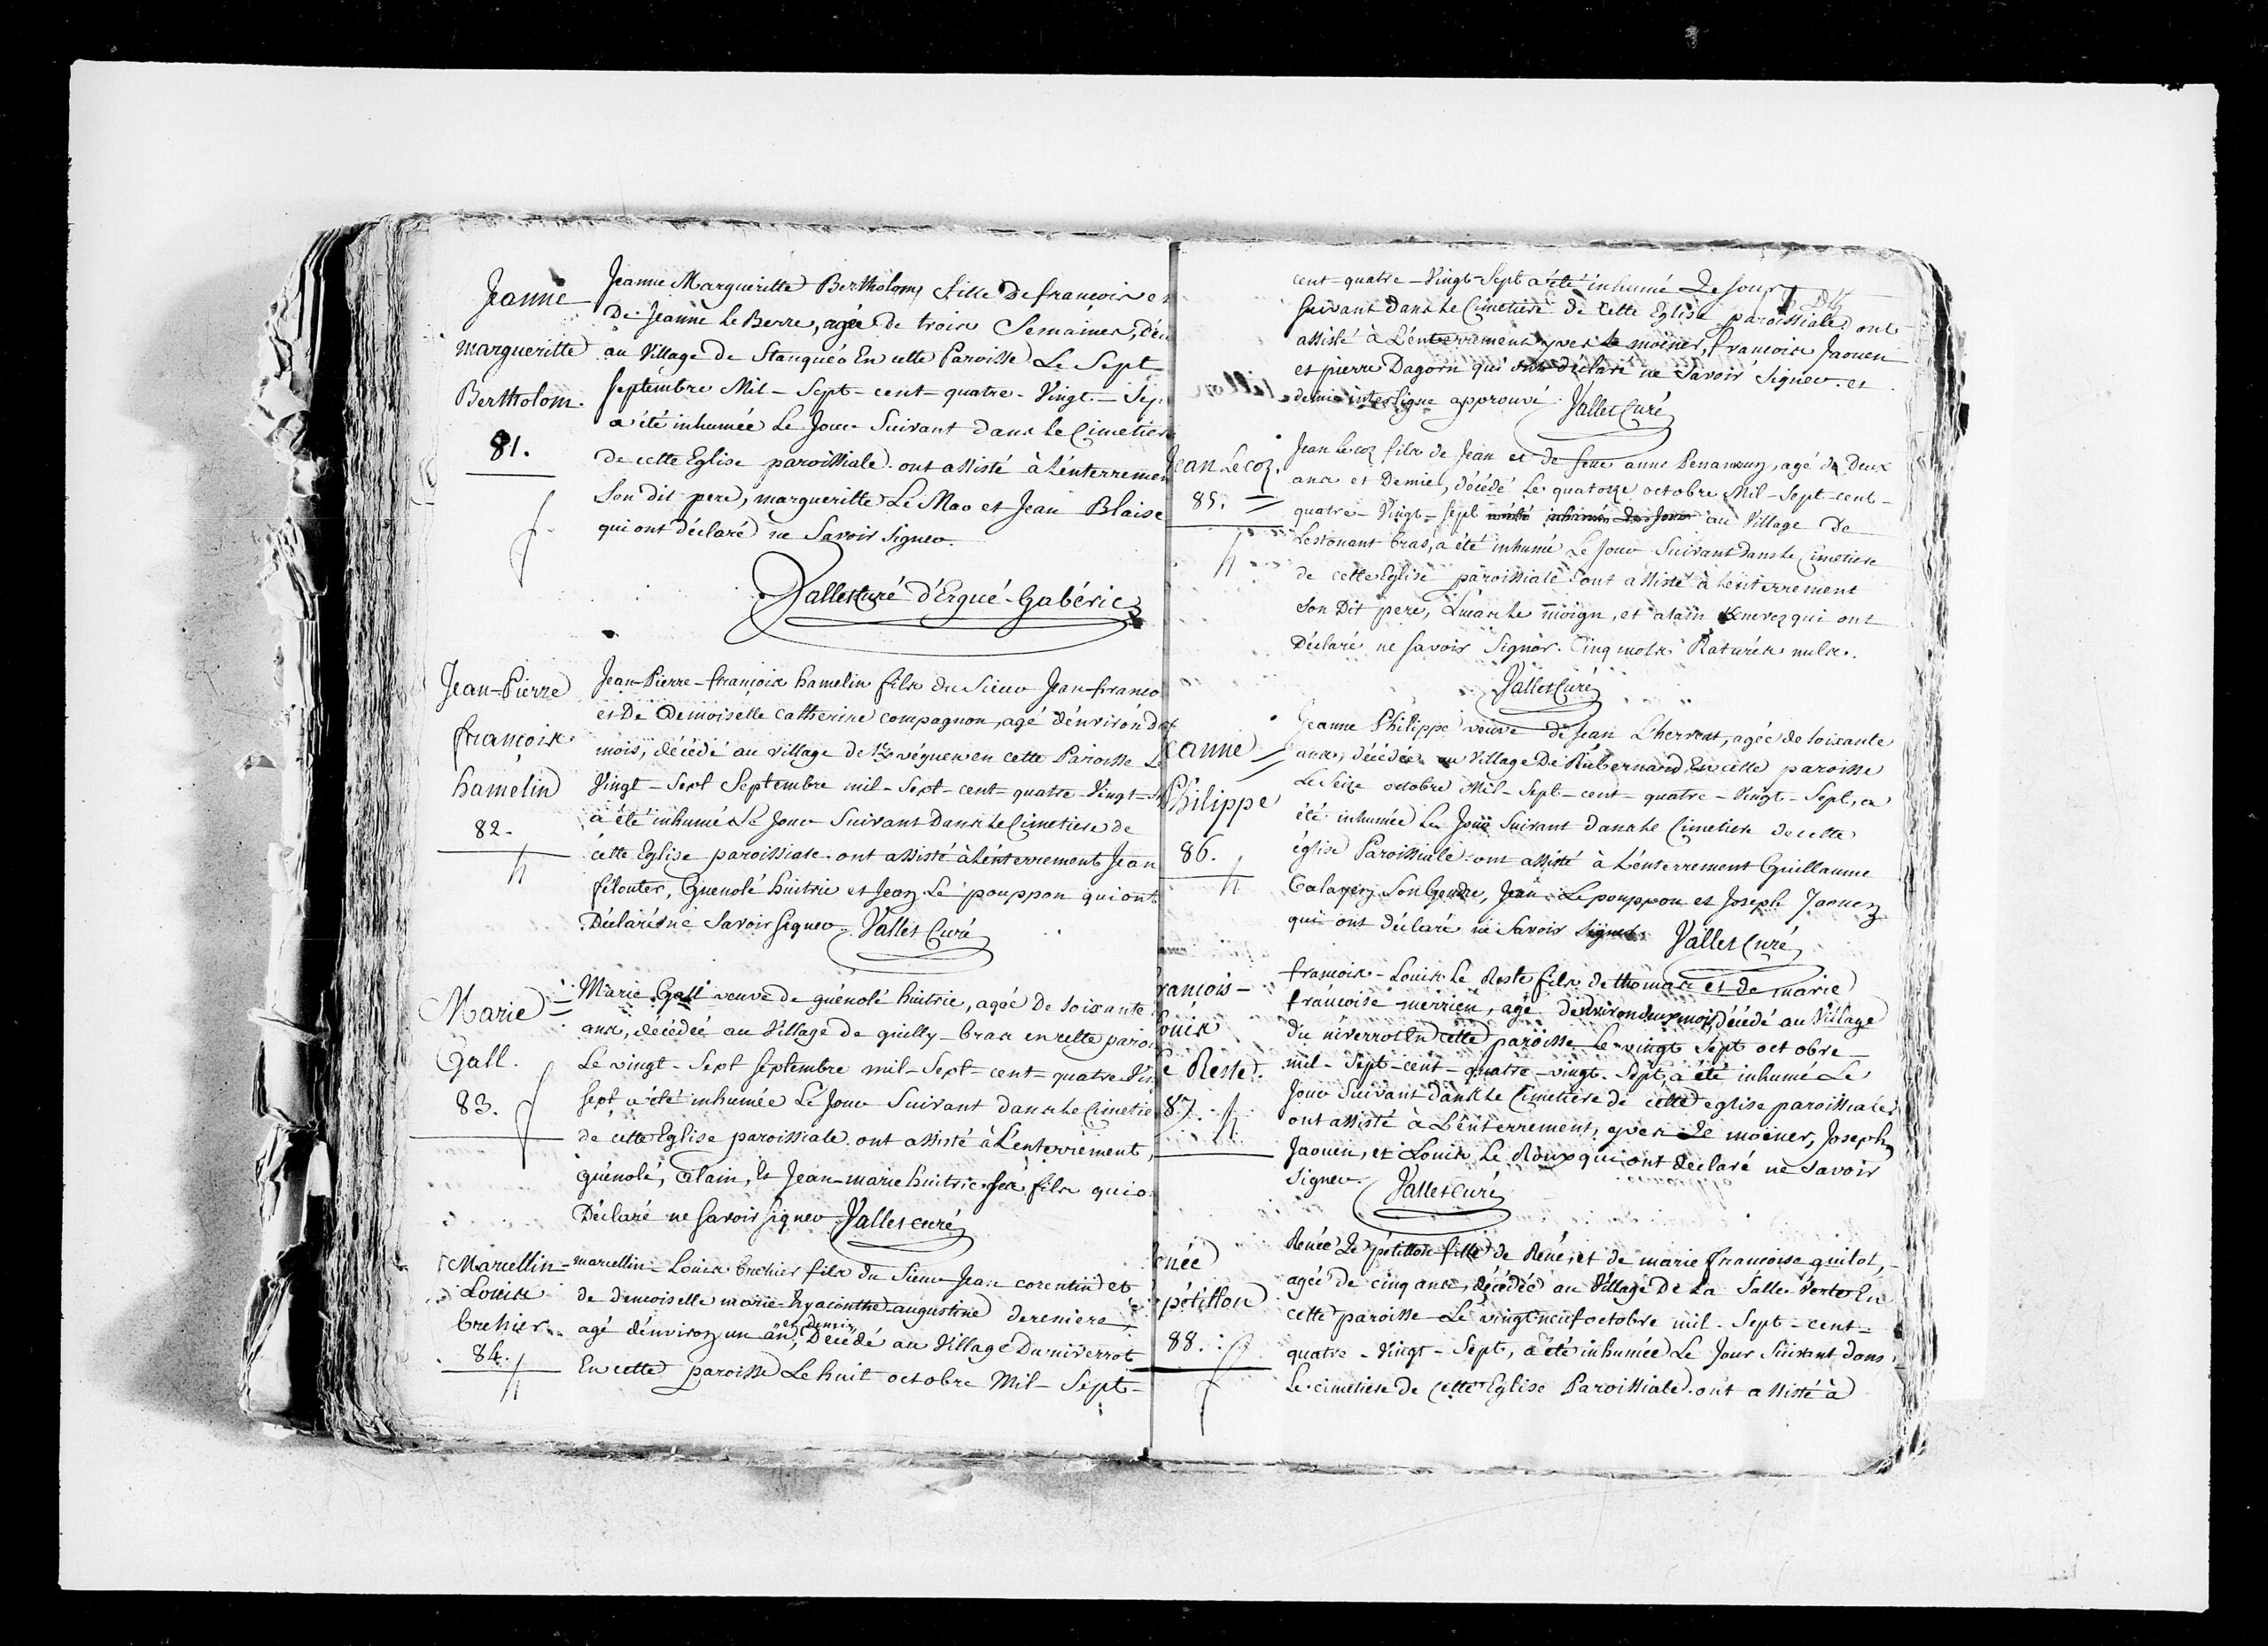 Jeanne
margueritte
Bertholom.
81.
Jeanne Margueritte Bertholom, fille De francois et
De Jeanne Le Berre, agée de trois Semaines, déc
au Village de Stanquéo En cette Paroisse Le Sept
septembre Mil-Sept-cent-quatre-Vingt-Sep
a été inhumée Le Jour Suivant dans Le Cimetiere
de cette Eglise paroissiale. ont assisté à L'enterremen
Son dit pere, margueritte Le Mao et Jean Blaise
qui ont déclaré ne Savoir Signer.
Vallet Curé d'Ergué-Gabéric
Jean-Pierre
françois
hamelin
82.
Jean-Pierre-françois hamelin fils du Sieur Jean-franco
et De Demoiselle Catherine compagnon, agé d'environ
mois, décédé au village de en cette Paroisse L
Vingt-Sept Septembre mil-Sept-cent-quatre-Vingt-
a été inhumé Le Jour Suivant Dans Le Cimetiere de
cette Eglise paroissiale. ont assisté à L'enterrement Jean
félouter, Guenolé huitric et Jean Le pouppon qui ont
Déclaré ne Savoir Signer. Vallet Curé
Marie
Gall.
83.
Marie Gall veuve de guénolé huitric, agée De Soixante
ans, décédée au Village de quilly-bras en cette paroi
Le vingt-Sept septembre mil-Sept-cent-quatre-Vin
sept a été inhumée Le Jour Suivant dans Le Cimetie
de cette Eglise paroissiale. ont assisté à L'enterrement,
guénolé, Alain, et Jean-marie huitric ses fils qui o
Déclaré ne Savoir signer Vallet curé
Marcellin-
Louis
brehier.
84.
marcellin-Louis brehier fils du Sieur Jean corentin et
de demoiselle marie-hyacinthe-augustine dereniere,
agé d'environ un an et demi, Décédé au Village Du niverrot
En cette paroisse Le huit octobre Mil-Sept-
cent-quatre-Vingt-Sept a été inhumé Le Jour
suivant dans Le Cimetiere de Cette Eglise paroissiale. ont
assisté à L'enterrement yves Le moëner, francois Jaouen
et pierre Dagorn qui ont déclaré ne Savoir Signer. et
demi interligne approuvé. Vallet Curé
Jean Lecoz.
85.
Jean Lecoz fils de Jean et de feue anne Penanrun, agé de Deux
ans et Demie, décédé Le quatorze octobre Mil-Sept-cent-
quatre-Vingt-Sept a été inhumé Le Jour au Village De
Lestonant bras, a été inhumé Le Jour Suivant Dans Le Cimetiere
de cette Eglise paroissiale. ont assisté à L'enterrement
Son Dit pere, Le moign, et alain qui ont
Déclaré ne Savoir Signer. Cinq mots Raturés nuls.
Vallet Curé
eanne
Philippe
86.
Jeanne Philippe veuve de Jean L'herveat, agée de Soixante
ans, décédée au Village De Rubernard En cette paroisse
Le Seize octobre Mil-Sept-cent-quatre-Vingt-Sept, a
été inhumée Le Jour Suivant dans Le Cimetiere de cette
église Paroissiale. ont assisté à L'enterrement Guillaume
Calayen Son Gendre, Jean Le pouppon et Joseph Jaouen
qui ont déclaré ne Savoir Signer. Vallet Curé
rançois-
ouis
e Reste.
87.
françois-Louis Le Reste fils de thomas et de marie
françoise merrien, agé d'environ deux mois, décédé au Village
du niverrot En cette paroisse Le vingt Sept octobre
mil-Sept-cent-quatre-vingt-Sept, a été inhumé Le
Jour Suivant dans Le Cimetiere de cette eglise paroissiale
ont assisté à L'enterrement, yves Le moëner, Joseph
Jaouen, et Louis Le Roux qui ont declaré ne Savoir
Signer. Vallet Curé
enée
pétillon
88.
Renée Le pétillon fille de René, et de marie françoise quilot,
agée de cinq ans, décédée au Village De La Salle Verte En
cette paroisse Le vingt neuf octobre mil-Sept-cent-
quatre-Vingt-Sept, a été inhumée Le Jour Suivant dans
Le cimetiere de cette Eglise Paroissiale. ont assisté à